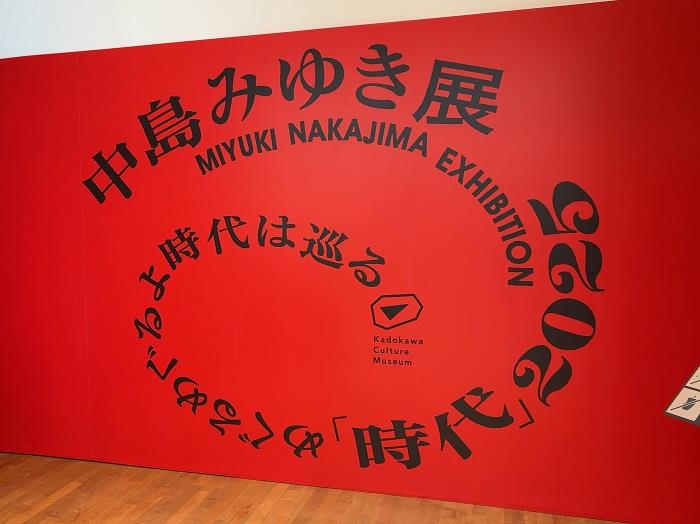 中島みゆき展
MIYUKI NAKAJIMA EXHIBITION
「時代」2025
めぐるめぐるよ時代は巡る
Kadokawa
Culture
Museum